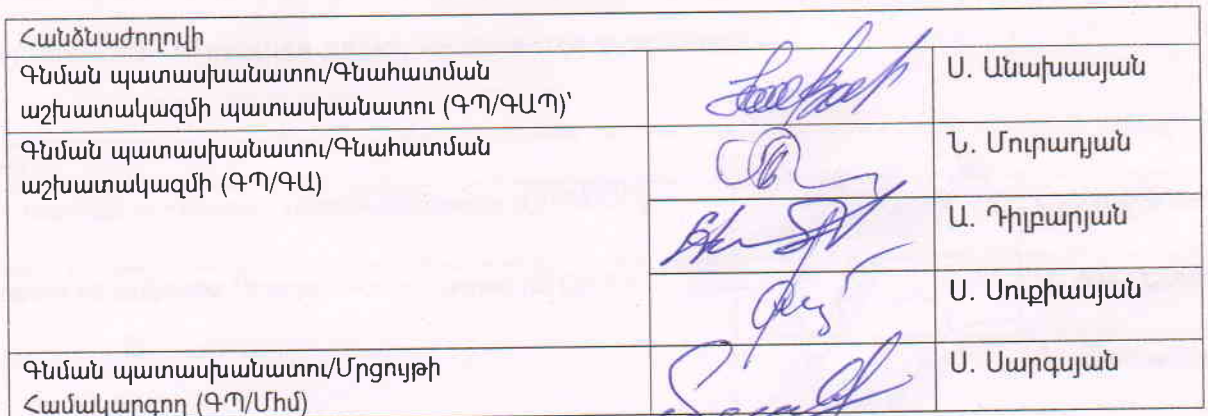 Հանձնաժողովի
Գնման պատասխանատու/Գնահատման
աշխատակազմի պատասխանատու (ԳՊ/ԳԱՊ)՝
Ս. Անախասյան
Գնման պատասխանատու/Գնահատման
աշխատակազմի (ԳՊ/ԳԱ)
Ն. Մուրադյան
Ա. Դիլբարյան
Ս. Սուքիասյան
Գնման պատասխանատու/Մրցույթի
Համակարգող (ԳՊ/Մհմ)
Ս. Սարգսյան